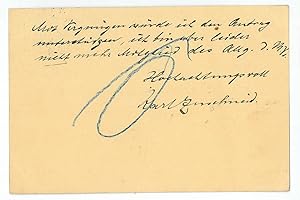 Mit Vergnügen würde ich den Antrag
unterstützen, ich bin aber leider
nicht mehr Mitglied des Allg. D.
Hochachtungsvoll
Karl